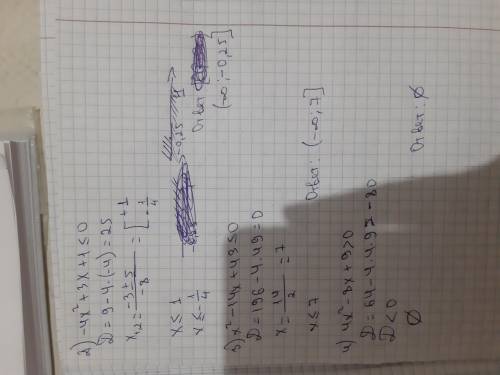 2) -4x²+3x+1≤0
D=9-4·(-4)=25
x₁,₂ = (-3±5)/(-8) = [+1
-1/4
x≤1
x≤-1/4
-0,25
Ответ:
(-∞;-0,25]
3) x²-14x+49≤0
D=196-4·49=0
x=14/2=7
x≤7
Ответ: (-∞;7]
4) 4x²-8x+9>0
D=64-4·4·9=-80
D<0
∅
Ответ: ∅